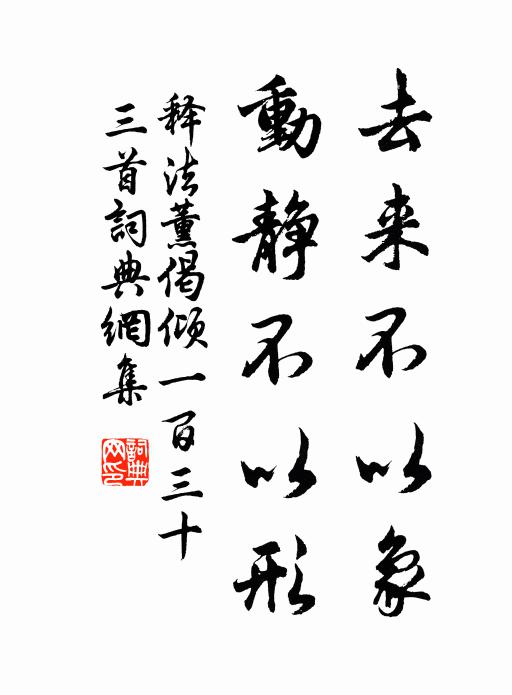 去来不以象
動静不以形
释法薰偈倾一百三十
三首詞典網集
詞典網印